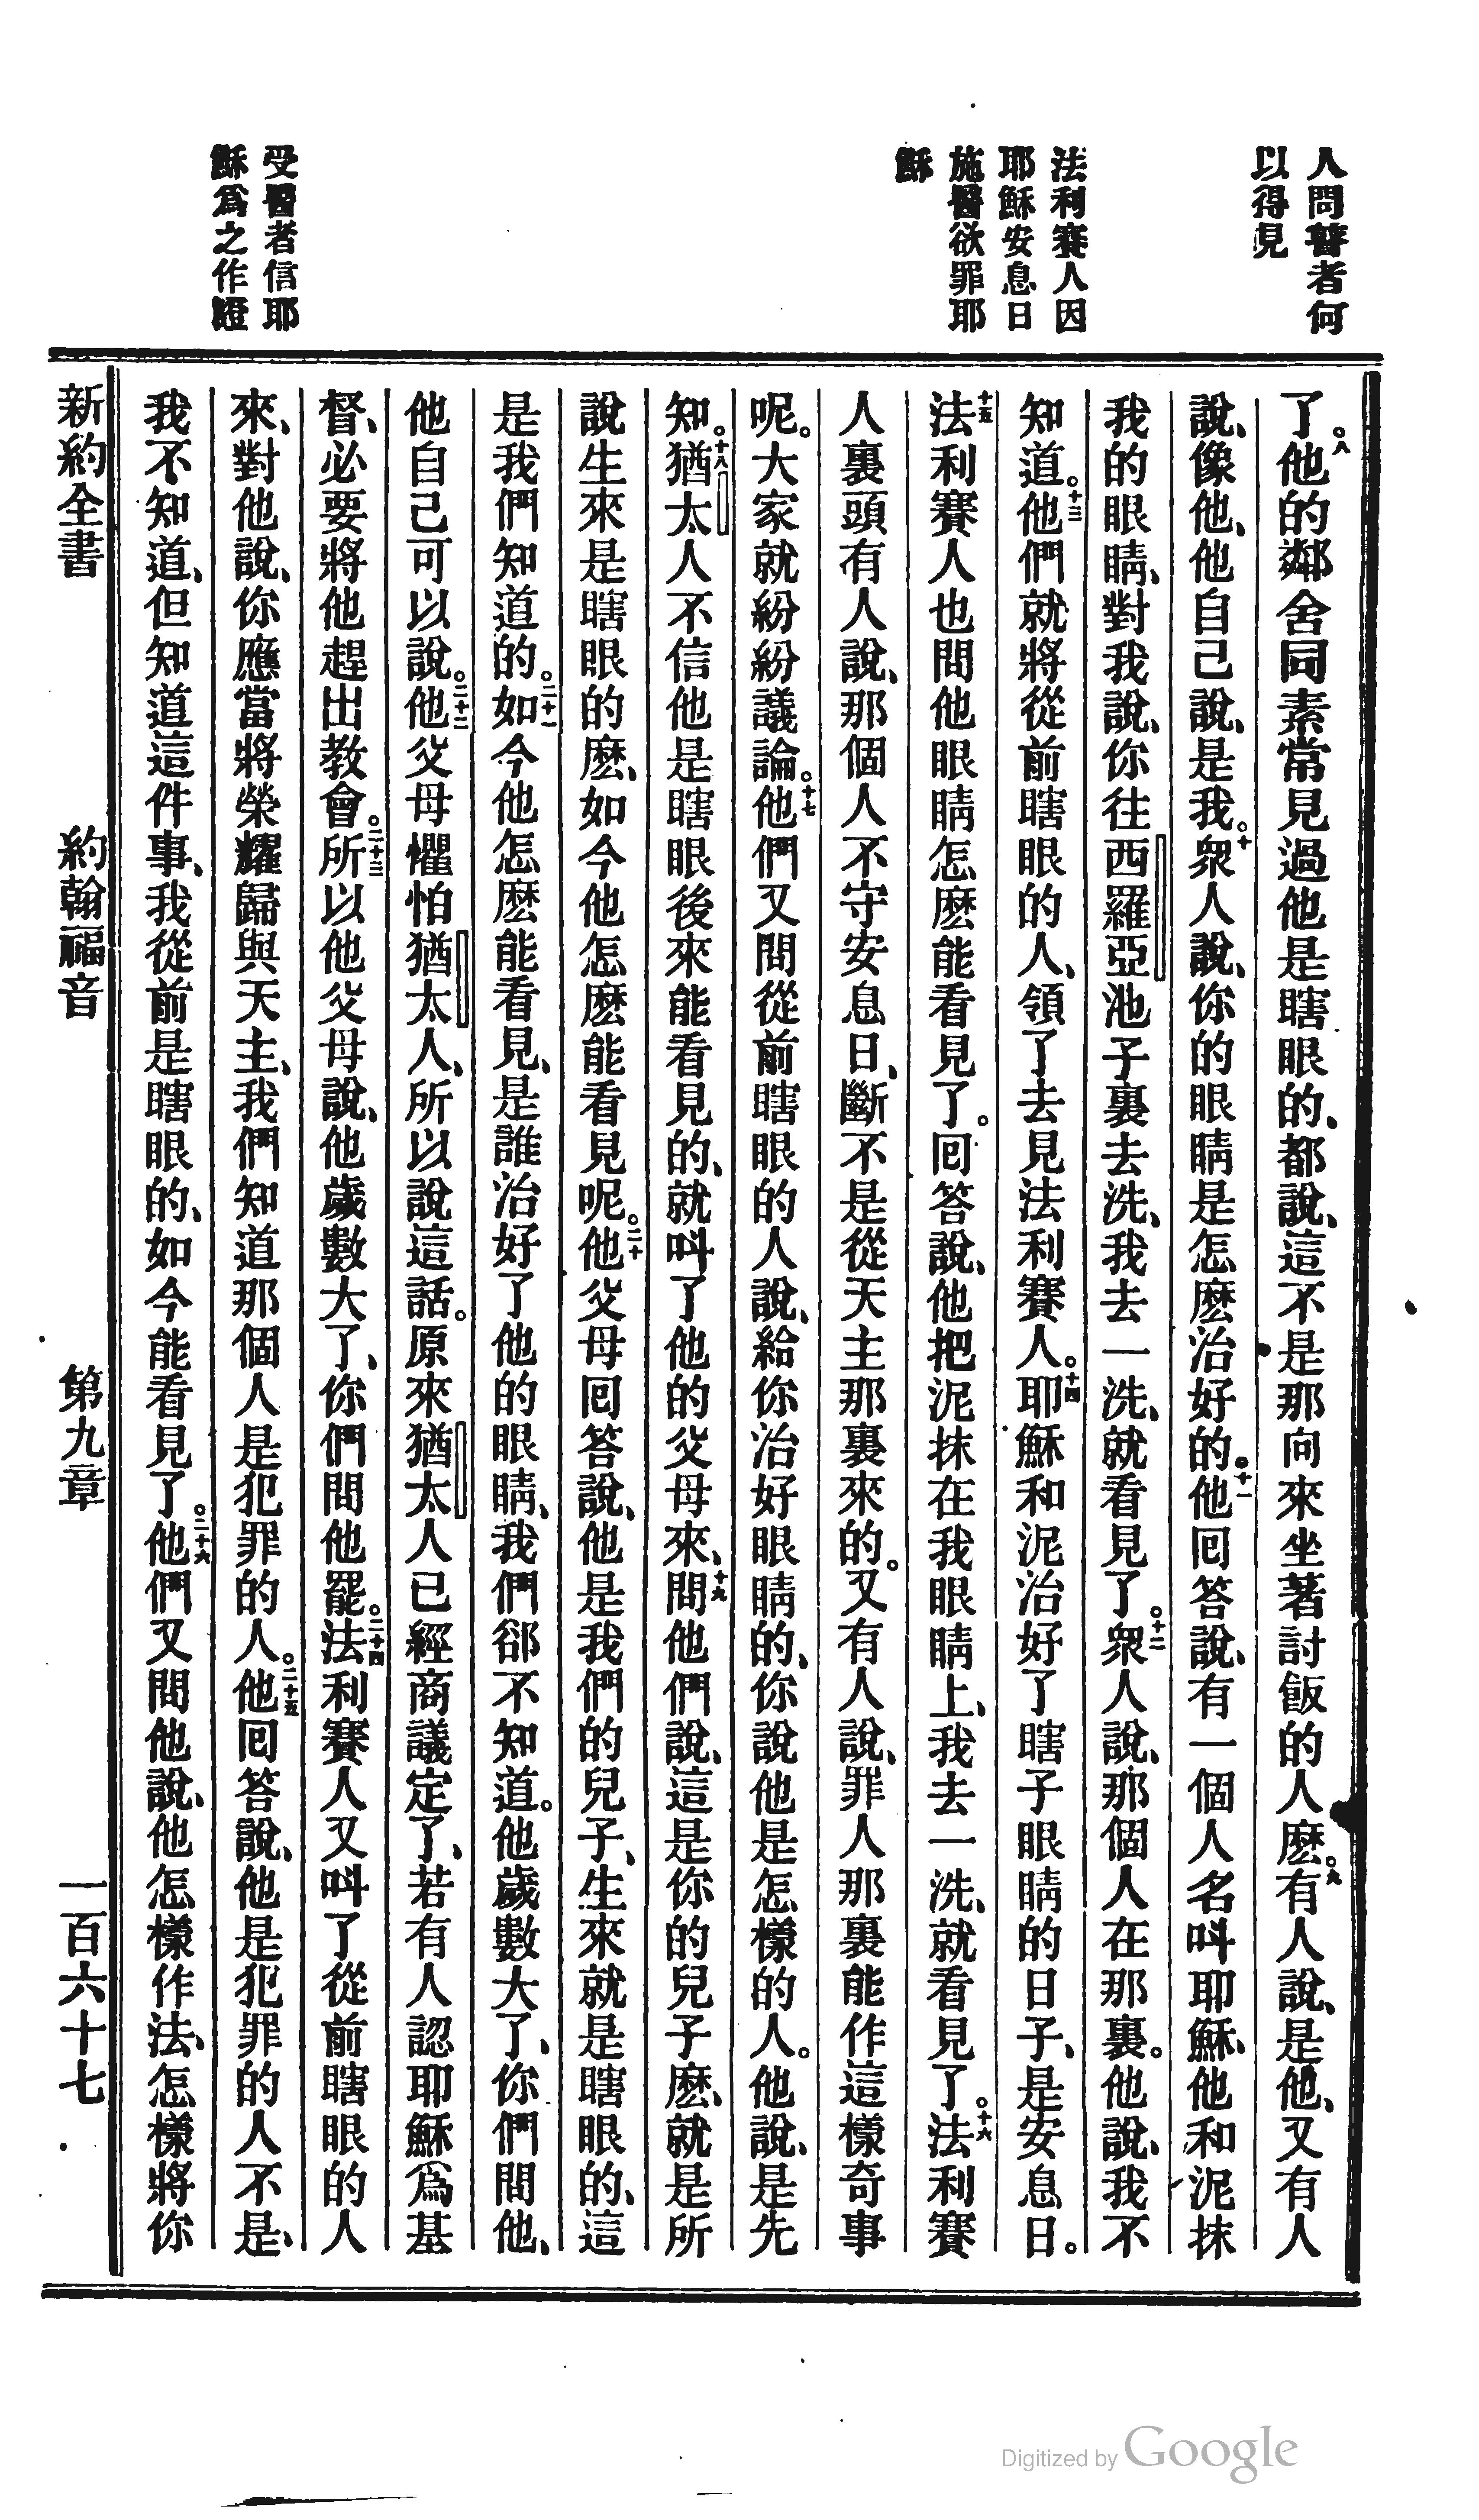 人問瞽者何
以得見
法利賽人因
耶穌安息日
施醫欲罪耶
穌
受醫者信耶
穌爲之作證
了。八他的鄰舍同素常見過他是瞎眼的、都說、這不是那向來坐著討飯的人麽。九有人說、是他、又有人
說、像他、他自己說、是我。十衆人說、你的眼睛是怎麽治好的。十一他囘答說、有一個人名呌耶穌、他和泥抹
我的眼睛、對我說、你往西羅亞池子裏去洗、我去一洗、就看見了。十二衆人說、那個人在那裏。他說、我不
知道。十三他們就將從前瞎眼的人、領了去見法利賽人。十四耶穌和泥治好了瞎子眼睛的日子、是安息日。
十五法利賽人也問他眼睛怎麽能看見了。囘答說、他把泥抹在我眼睛上、我去一洗、就看見了。十六法利賽
人裏頭有人說、那個人不守安息日、斷不是從天主那裏來的。又有人說、罪人那裏能作這樣奇事
呢。大家就紛紛議論。十七他們又問從前瞎眼的人說、給你治好眼睛的、你說他是怎樣的人。他說、是先
知。十八猶太人不信他是瞎眼後來能看見的、就呌了他的父母來、十九問他們說、這是你的兒子麽、就是所
說生來是瞎眼的麽、如今他怎麽能看見呢。二十他父母囘答說、他是我們的兒子、生來就是瞎眼的、這
是我們知道的。二十一如今他怎麽能看見、是誰治好了他的眼睛、我們卻不知道。他歲數大了、你們問他、
他自己可以說。二十二他父母懼怕猶太人、所以說這話。原來猶太人已經商議定了、若有人認耶穌爲基
督、必要將他趕出教會。二十三所以他父母說、他歲數大了、你們問他罷。二十四法利賽人又呌了從前瞎眼的人
來、對他說、你應當將榮耀歸與天主、我們知道那個人是犯罪的人。二十五他囘答說、他是犯罪的人不是、
我不知道、但知道這件事、我從前是瞎眼的、如今能看見了。二十六他們又問他說、他怎樣作法、怎樣將你
新約全書　約翰福音　第九章　一百六十七
Digitized by Google